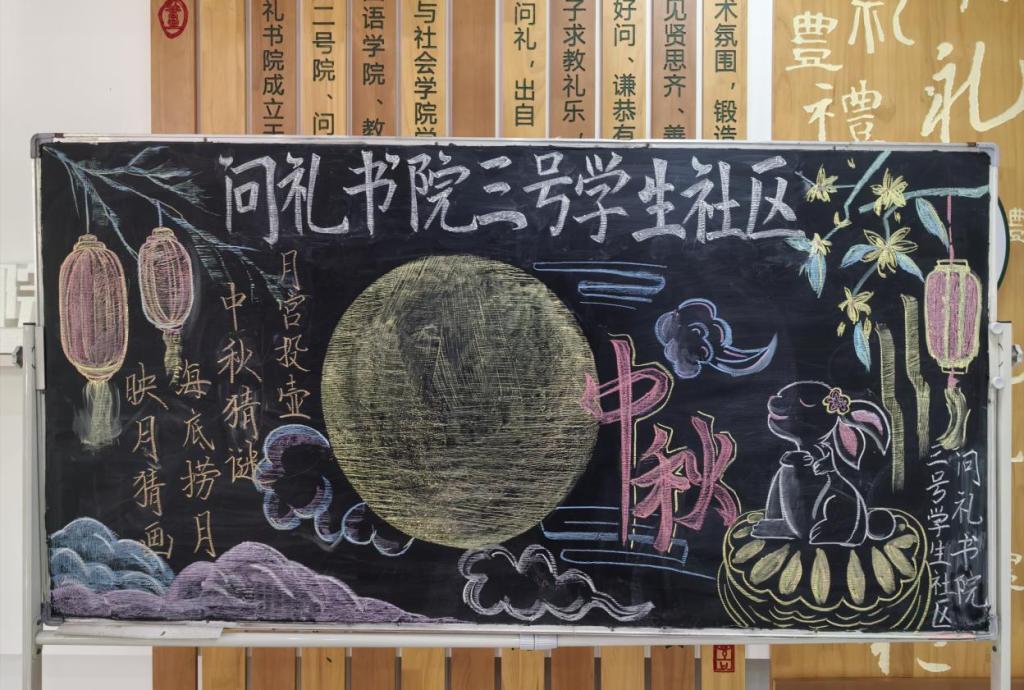 礼书院成立于
二号院、问
语学院、教
与社会学院学
问礼，出自
子求教礼乐，
好问、谦恭有
见贤思齐、善
术氛围，锻造
礼
豊
禮
礼
问礼书院三号学生社区
月宫投壶
中秋猜谜
海底捞月
映月猜画
中秋
问礼书院
三号学生社区